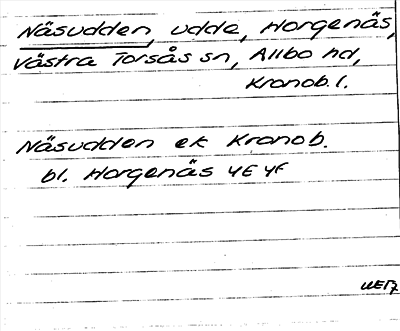 Näsudden, udde, Horgenäs,
Västra Torsås sn, Allbo hd,
Kronob. l.
Näsudden ek Kronob.
bl. Horgenäs 4E 4f